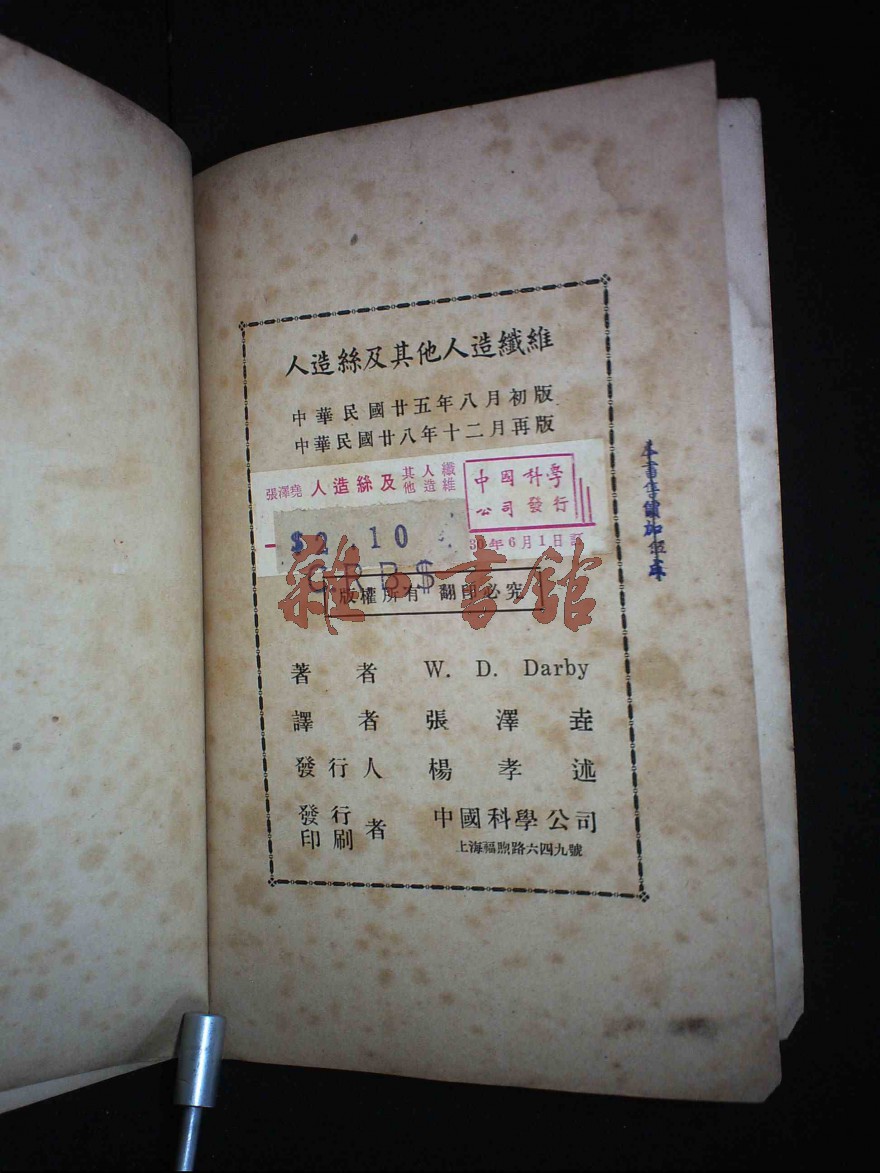 人造絲及其他人造纖維
中華民國廿五年八月初版
中華民國廿八年十二月再版
張澤堯 人造絲及其他人造纖維
中國科學
公司發行
30年6月1日訂
$2.10
C.R.B.$
雜書館
版權所有 翻印必究
著者 W. D. Darby
譯者 張澤垚
發行人 楊孝述
發行印刷者 中國科學公司
上海福煦路六四九號
本書售價加